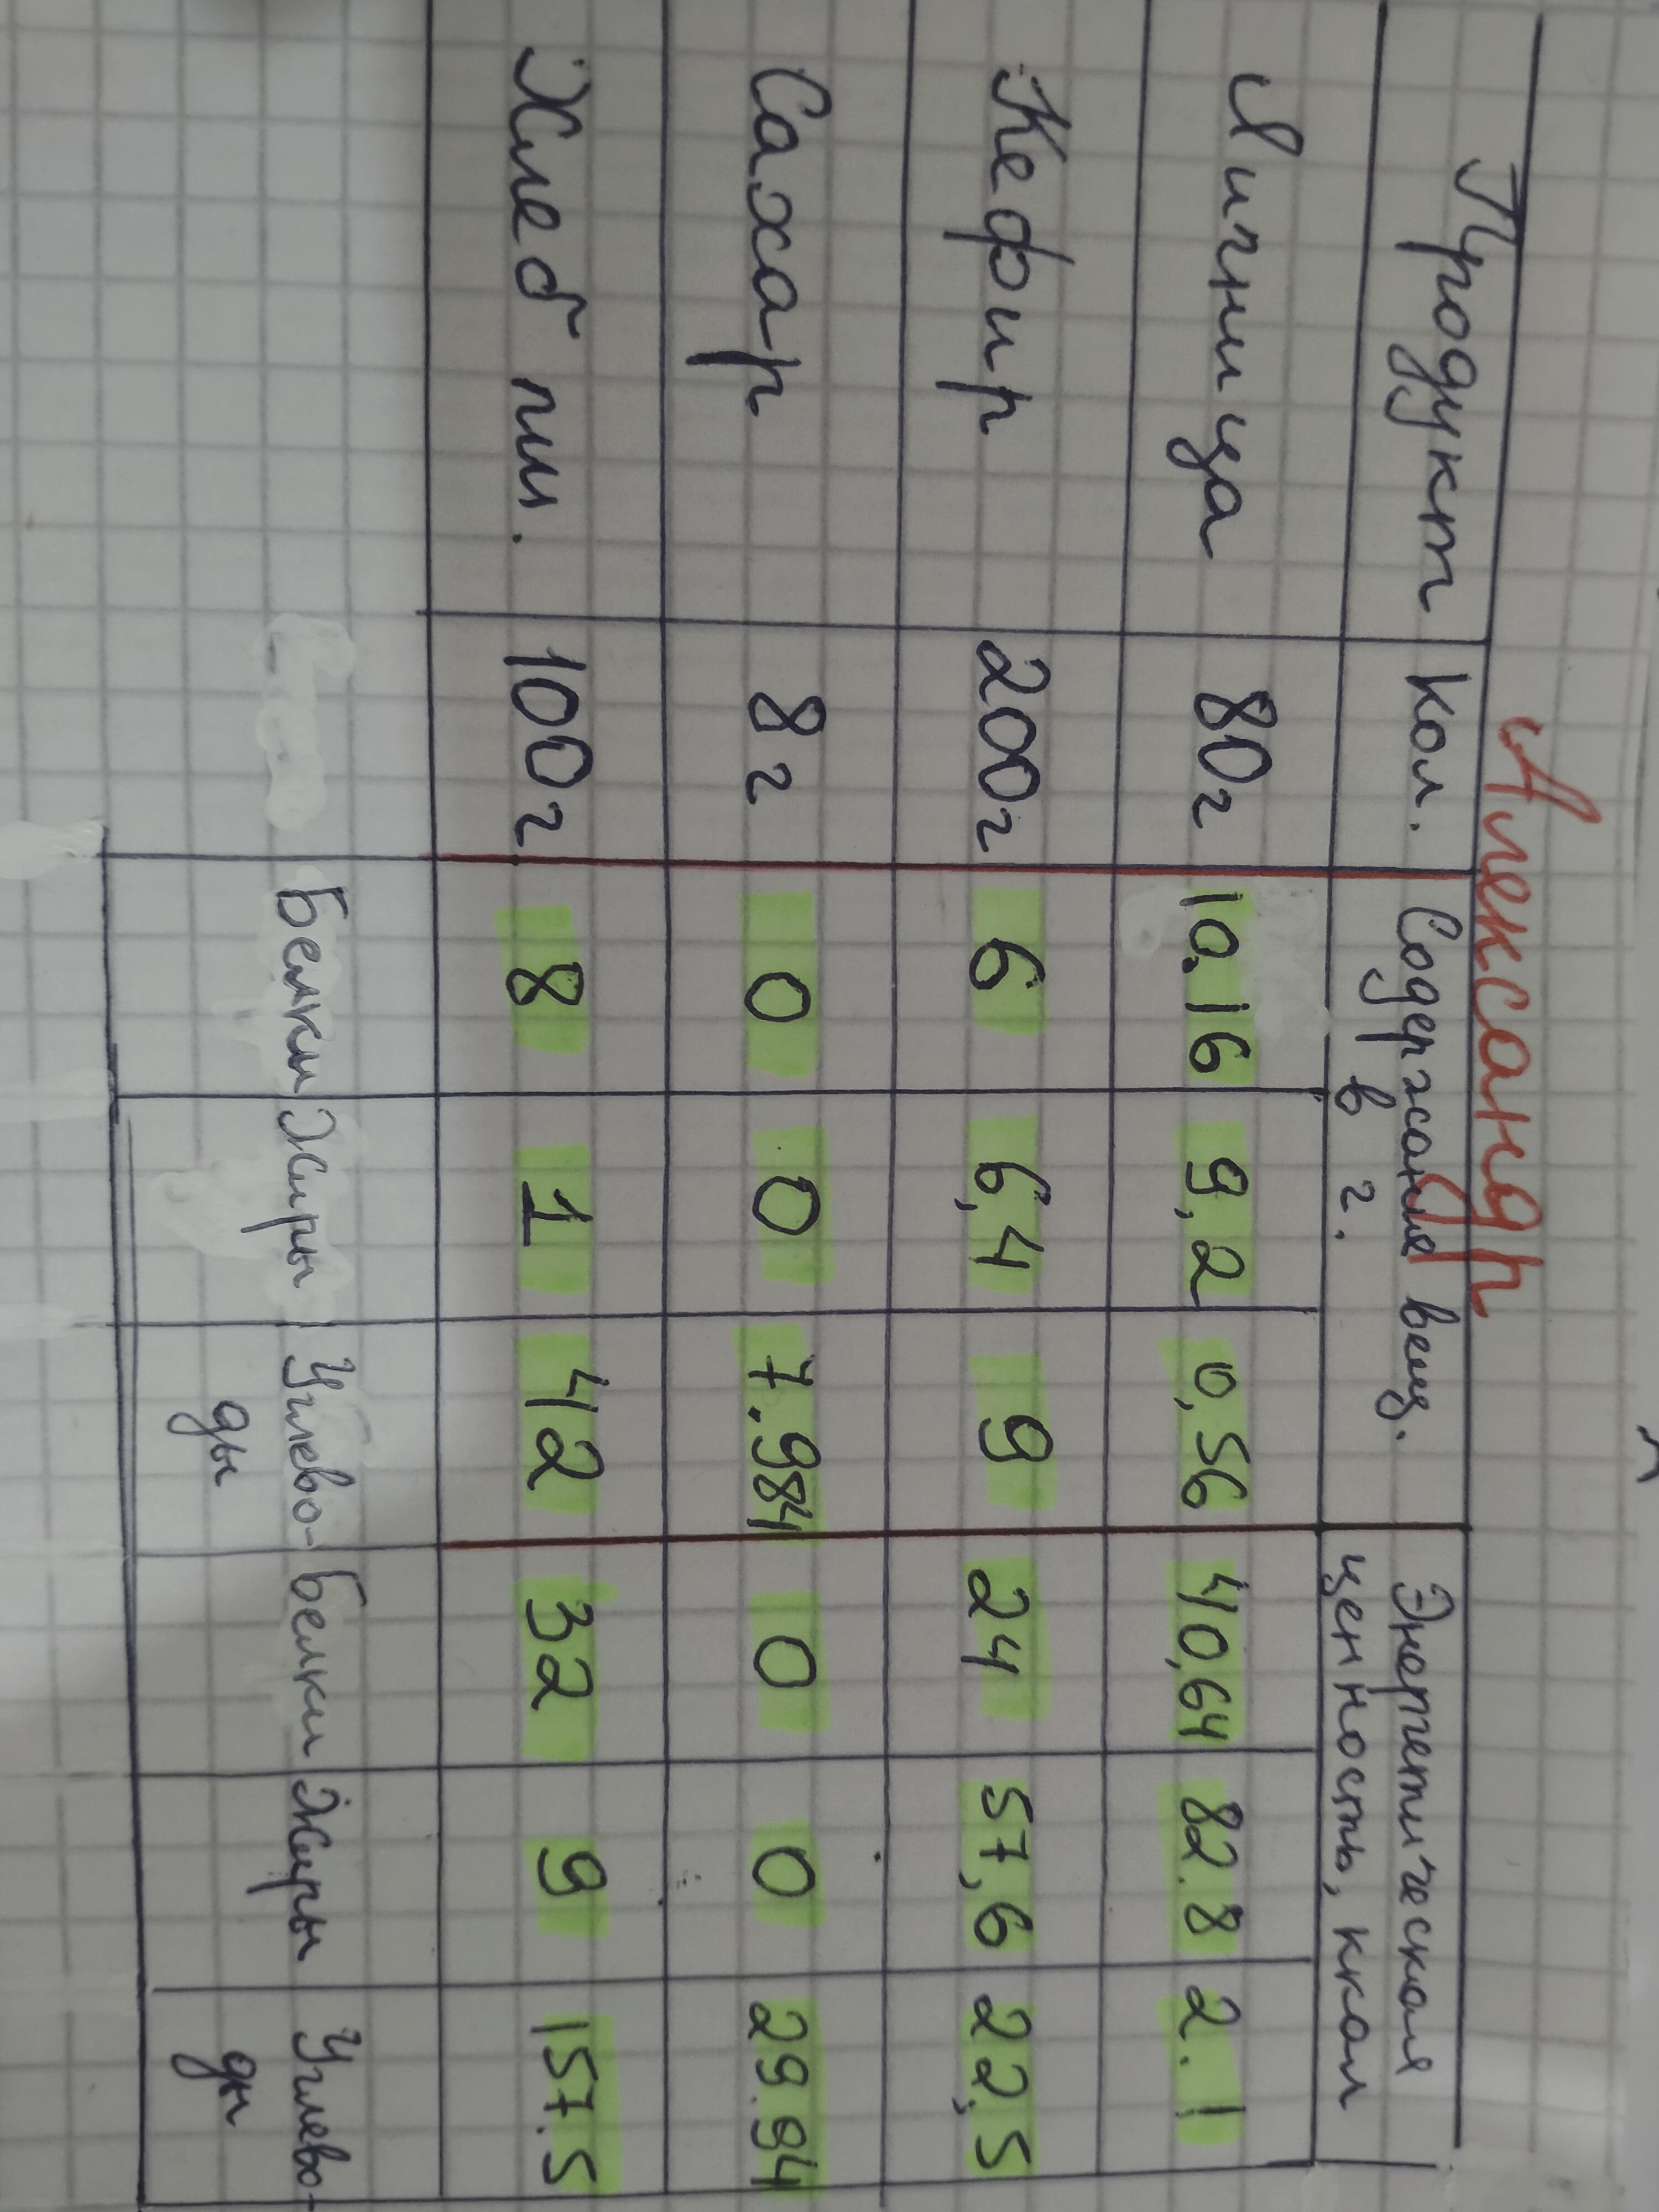 Александр
Продукт Кол. Содержание вещ. в г. Энергетическая ценность, ккал
Яичница 80г 10.16 9,2 0,56 40,64 82.8 2.1
Кефир 200г 6 6,4 9 24 57,6 22,5
Сахар 8г 0 0 7.984 0 0 29.94
Хлеб пш. 100г 8 1 42 32 9 157.5
Белки Жиры Углево- ды Белки Жиры Углево- ды